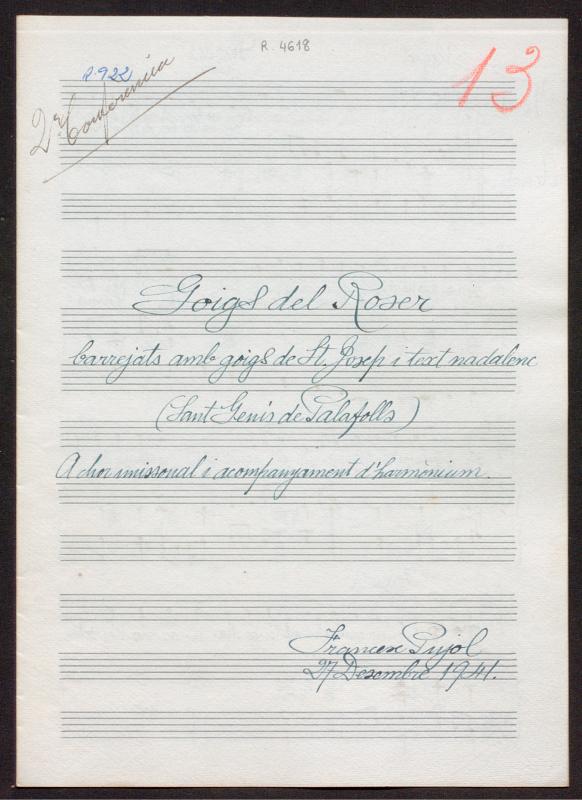 R. 4618
R. 922
13
2ª Conferencia
Goigs del Roser
barrejats amb goigs de St. Josep i text nadalenc
(Sant Genís de Palafolls)
A chor unissonal i acompanyament d'harmònium.
Francesc Pujol
27 Desembre 1941.